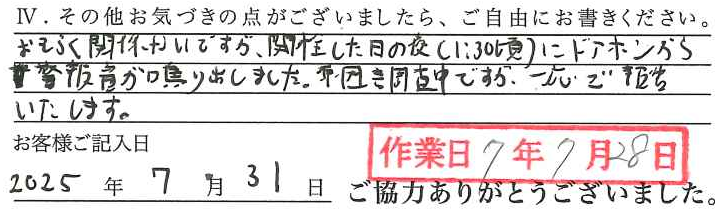 Ⅳ. その他お気づきの点がございましたら、ご自由にお書きください。
おそらく関係ないですが、開栓した日の夜(11:30頃)にドアホンから
警報音が鳴り出しました。原因を調査中ですが、一応ご報告
いたします。
お客様ご記入日
作業日 7年7月28日
2025 年 7 月 31 日 ご協力ありがとうございました。